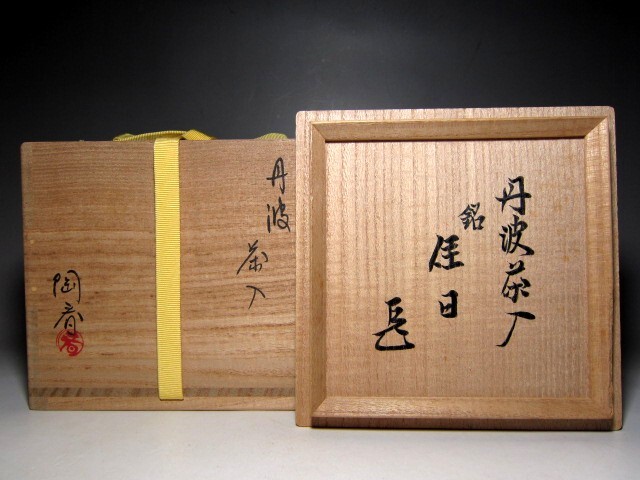 丹波
茶入
陶春
丹波茶入
銘
佳日